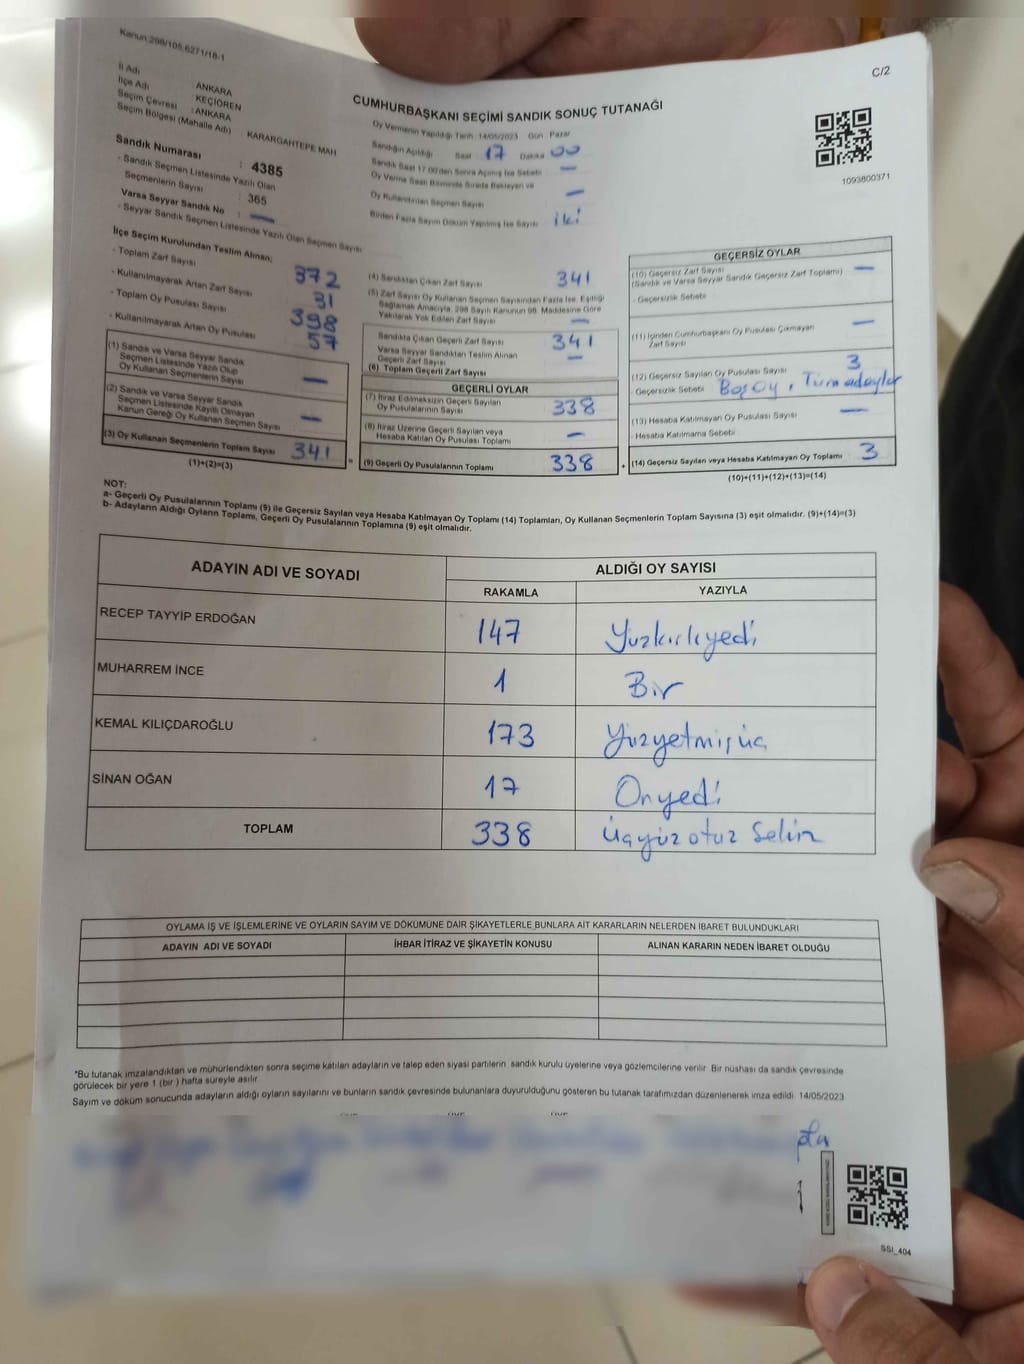 Kanun:298/105,6271/18-1
C/2
İl Adı : ANKARA
İlçe Adı : KEÇİÖREN
Seçim Çevresi : ANKARA
Seçim Bölgesi (Mahalle Adı) : KARARGAHTEPE MAH
Sandık Numarası : 4385
- Sandık Seçmen Listesinde Yazılı Olan
Seçmenlerin Sayısı : 365
Varsa Seyyar Sandık No : —
- Seyyar Sandık Seçmen Listesinde Yazılı Olan Seçmen Sayısı
CUMHURBAŞKANI SEÇİMİ SANDIK SONUÇ TUTANAĞI
Oy Vermenin Yapıldığı Tarih 14/05/2023 Gün Pazar
Sandığın Açıldığı Saat 17 Dakika 00
Sandık Saat 17:00'den Sonra Açılmış İse Sebebi —
Oy Verme Saati Bitiminde Sırada Bekleyen ve
Oy Kullandırılan Seçmen Sayısı —
Birden Fazla Sayım Döküm Yapılmış İse Sayısı iki
1093800371
İlçe Seçim Kurulundan Teslim Alınan;
- Toplam Zarf Sayısı 372
- Kullanılmayarak Artan Zarf Sayısı 31
- Toplam Oy Pusulası Sayısı 398
- Kullanılmayarak Artan Oy Pusulası 57
(1) Sandık ve Varsa Seyyar Sandık
Seçmen Listesinde Yazılı Olup
Oy Kullanan Seçmenlerin Sayısı —
(2) Sandık ve Varsa Seyyar Sandık
Seçmen Listesinde Kayıtlı Olmayan
Kanun Gereği Oy Kullanan Seçmen Sayısı —
(3) Oy Kullanan Seçmenlerin Toplam Sayısı 341
(1)+(2)=(3)
(4) Sandıktan Çıkan Zarf Sayısı 341
(5) Zarf Sayısı Oy Kullanan Seçmen Sayısından Fazla İse, Eşitliği
Sağlamak Amacıyla, 298 Sayılı Kanunun 98. Maddesine Göre
Yakılarak Yok Edilen Zarf Sayısı —
Sandıkta Çıkan Geçerli Zarf Sayısı 341
Varsa Seyyar Sandıktan Teslim Alınan
Geçerli Zarf Sayısı —
(6) Toplam Geçerli Zarf Sayısı
GEÇERLİ OYLAR
(7) İtiraz Edilmeksizin Geçerli Sayılan
Oy Pusulalarının Sayısı 338
(8) İtiraz Üzerine Geçerli Sayılan veya
Hesaba Katılan Oy Pusulası Toplamı —
(9) Geçerli Oy Pusulalarının Toplamı 338
GEÇERSİZ OYLAR
(10) Geçersiz Zarf Sayısı —
(Sandık ve Varsa Seyyar Sandık Geçersiz Zarf Toplamı)
- Geçersizlik Sebebi
(11) İçinden Cumhurbaşkanı Oy Pusulası Çıkmayan
Zarf Sayısı —
(12) Geçersiz Sayılan Oy Pusulası Sayısı 3
- Geçersizlik Sebebi Boş Oy, Tüm adaylar
(13) Hesaba Katılmayan Oy Pusulası Sayısı —
- Hesaba Katılmama Sebebi
(14) Geçersiz Sayılan veya Hesaba Katılmayan Oy Toplamı 3
(10)+(11)+(12)+(13)=(14)
NOT:
a- Geçerli Oy Pusulalarının Toplamı (9) ile Geçersiz Sayılan veya Hesaba Katılmayan Oy Toplamı (14) Toplamları, Oy Kullanan Seçmenlerin Toplam Sayısına (3) eşit olmalıdır. (9)+(14)=(3)
b- Adayların Aldığı Oyların Toplamı, Geçerli Oy Pusulalarının Toplamına (9) eşit olmalıdır.
ADAYIN ADI VE SOYADI ALDIĞI OY SAYISI
RAKAMLA YAZIYLA
RECEP TAYYİP ERDOĞAN 147 Yüzkırkyedi
MUHARREM İNCE 1 Bir
KEMAL KILIÇDAROĞLU 173 Yüzyetmişüç
SİNAN OĞAN 17 Onyedi
TOPLAM 338 Üçyüz otuz Sekiz
OYLAMA İŞ VE İŞLEMLERİNE VE OYLARIN SAYIM VE DÖKÜMÜNE DAİR ŞİKAYETLERLE BUNLARA AİT KARARLARIN NELERDEN İBARET BULUNDUKLARI
ADAYIN ADI VE SOYADI İHBAR İTİRAZ VE ŞİKAYETİN KONUSU ALINAN KARARIN NEDEN İBARET OLDUĞU
*Bu tutanak imzalandıktan ve mühürlendikten sonra seçime katılan adayların ve talep eden siyasi partilerin sandık kurulu üyelerine veya gözlemcilerine verilir. Bir nüshası da sandık çevresinde
görülecek bir yere 1 (bir ) hafta süreyle asılır.
Sayım ve döküm sonucunda adayların aldığı oyların sayılarını ve bunların sandık çevresinde bulunanlara duyurulduğunu gösteren bu tutanak tarafımızdan düzenlenerek imza edildi. 14/05/2023
SSI_404